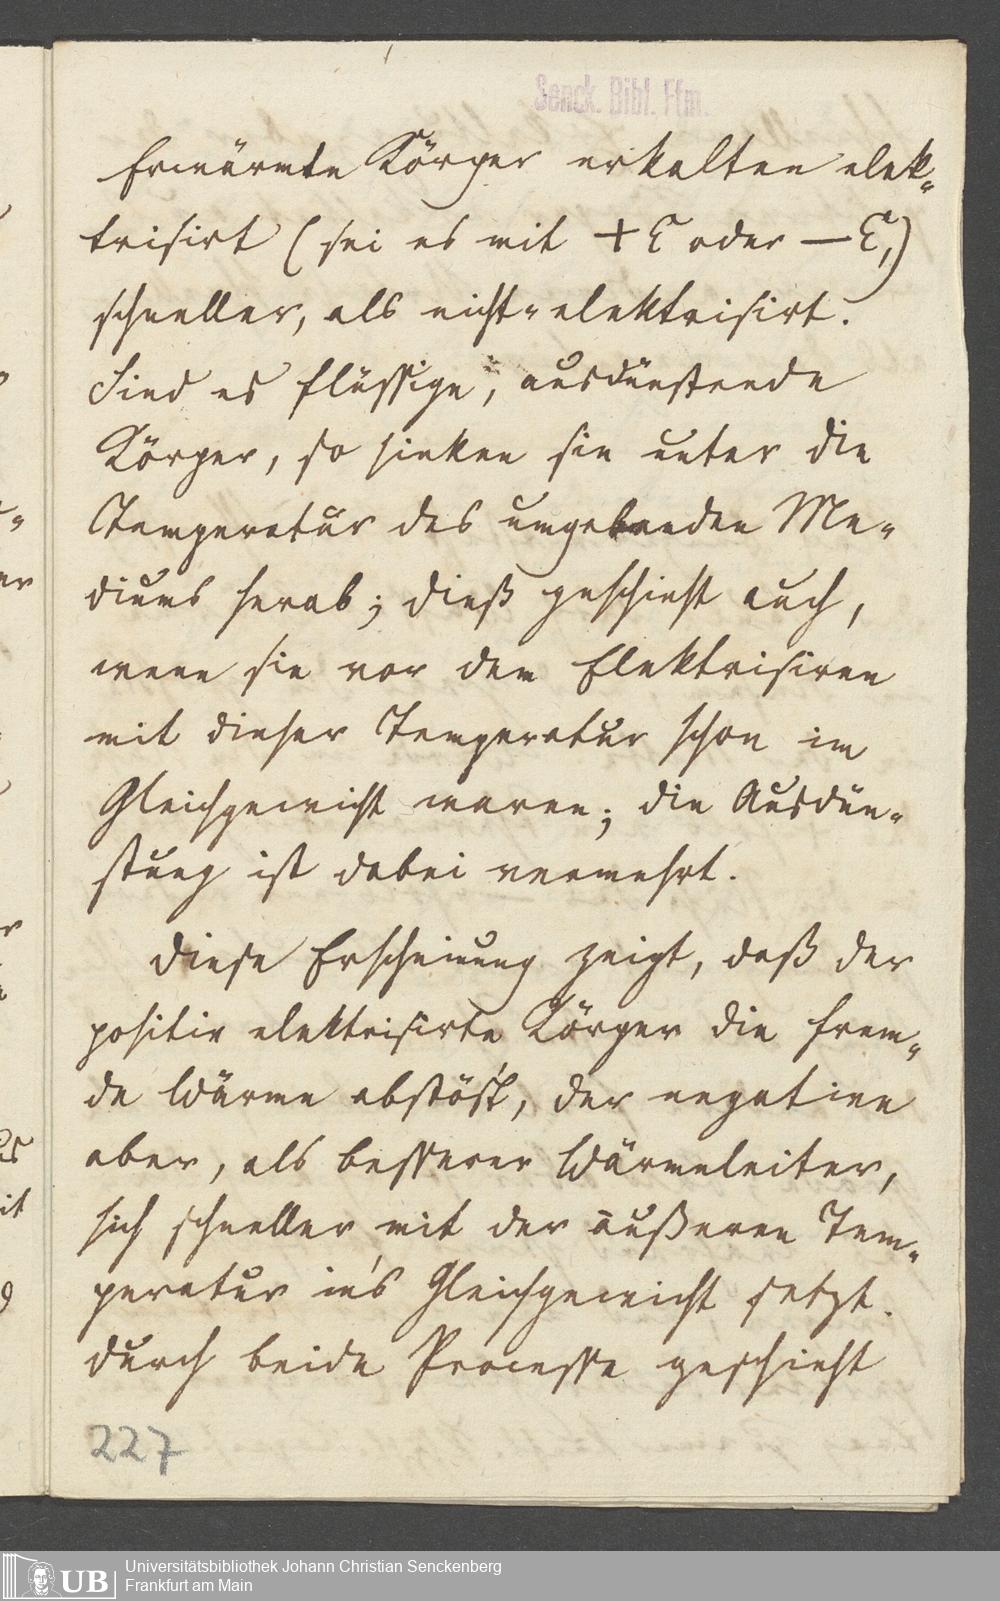 Senck. Bibl. Ffm.
Erwärmte Körper erkalten elek-
trisirt (sei es mit + E oder — E,)
schneller, als nicht-elektrisirt.
Sind es flüssige, ausdünstende
Körper, so sinken sie unter die
Temperatur des umgebenden Me-
diums herab; dieß geschieht auch,
wenn sie vor dem Elektrisiren
mit dieser Temperatur schon im
Gleichgewicht waren; die Ausdün-
stung ist dabei vermehrt.
Diese Erscheinung zeigt, daß der
positiv elektrisirte Körper die frem-
de Wärme abstößt, der negative
aber, als besserer Wärmeleiter,
sich schneller mit der äußeren Tem-
peratur in's Gleichgewicht setzt.
Durch beide Processe geschieht
227
UB
Universitätsbibliothek Johann Christian Senckenberg
Frankfurt am Main